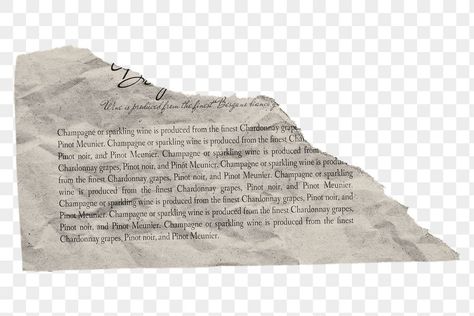 Wine is produced from the finest
Champagne or sparkling wine is produced from the finest Chardonnay grapes,
Pinot Meunier. Champagne or sparkling wine is produced from the finest
Pinot noir, and Pinot Meunier. Champagne or sparkling wine is produced
and Pinot Meunier. Champagne or sparkling wine is produced
from the finest Chardonnay grapes, Pinot noir, and Pinot Meunier. Champagne or sparkling
wine is produced from the finest Chardonnay grapes, Pinot noir, and Pinot Meunier.
Champagne or sparkling wine is produced from the finest Chardonnay grapes, Pinot noir, and
Pinot Meunier. Champagne or sparkling wine is produced from the finest Chardonnay grapes,
Pinot noir, and Pinot Meunier. Champagne or sparkling wine is produced from the finest
Chardonnay grapes, Pinot noir, and Pinot Meunier.